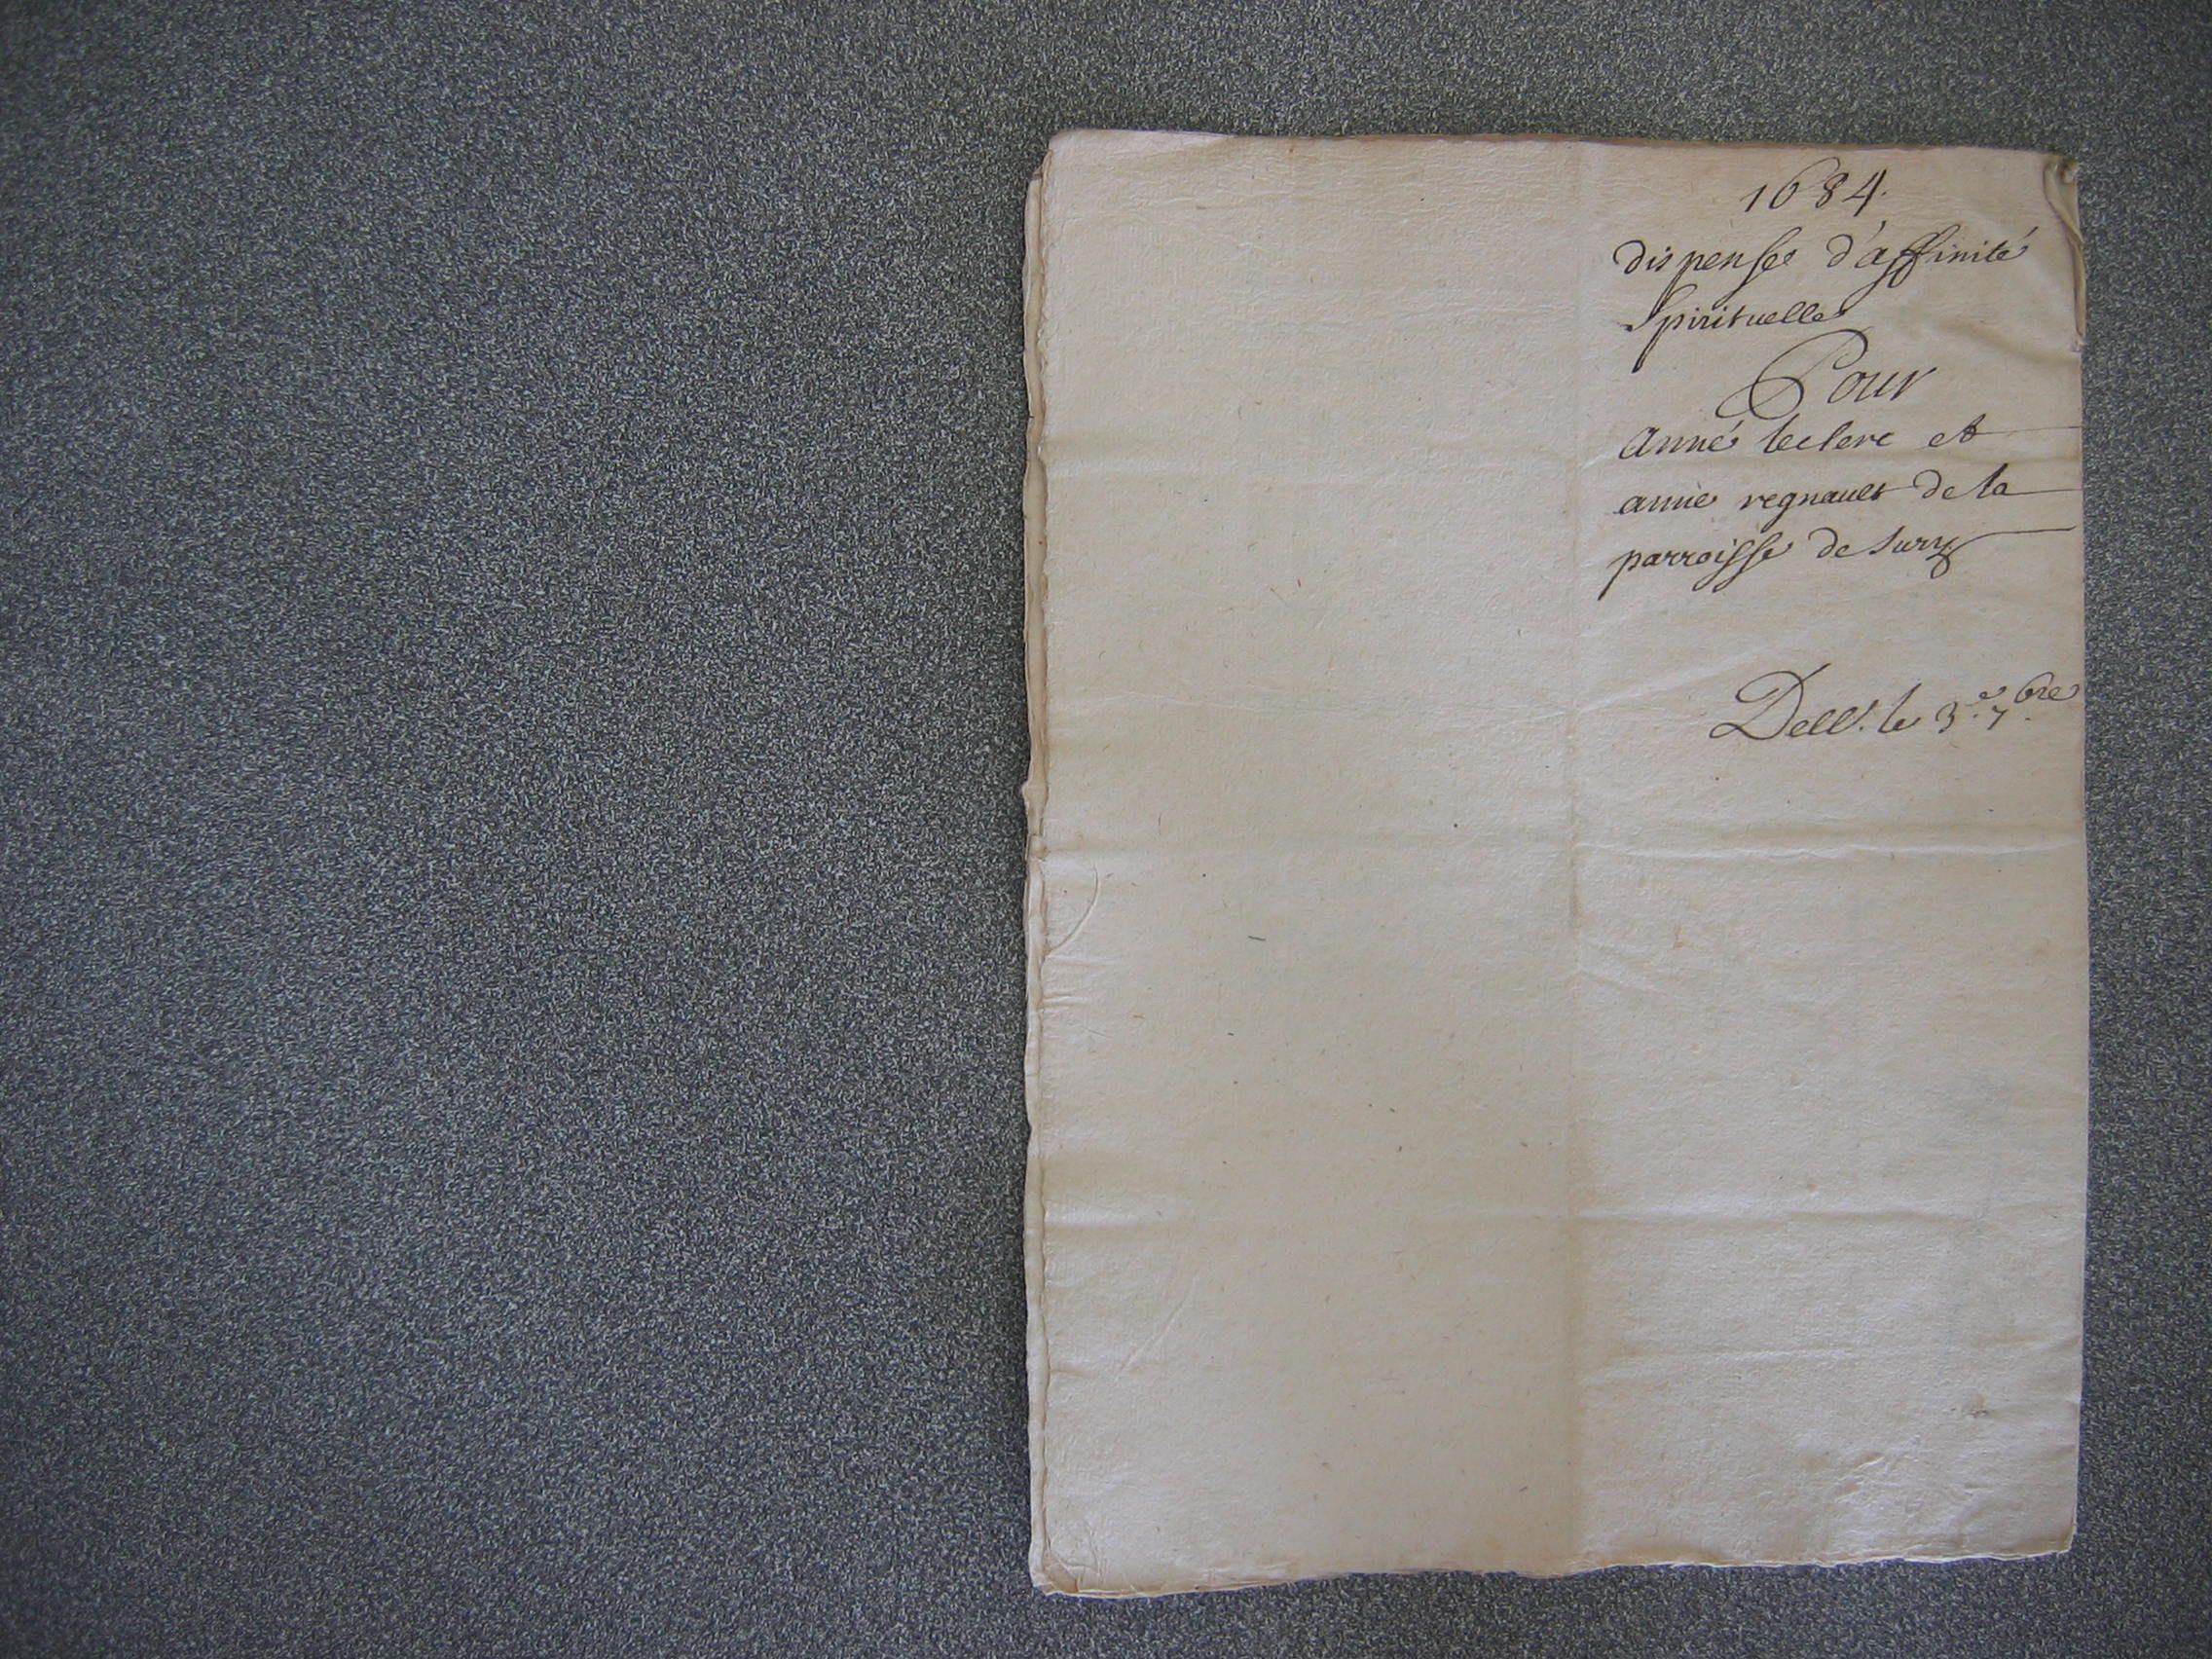 1684.
dispense d'affinité
Spirituelle
Pour
Anné leclerc et
anne regnault de la
parroisse de Sury
Dell. le 3e. 7.bre